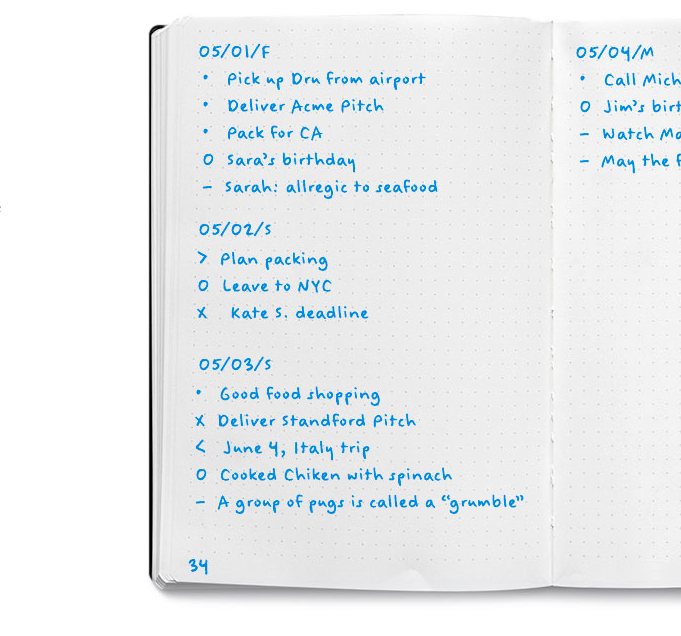 05/01/F
• Pick up Dru from airport
• Deliver Acme Pitch
• Pack for CA
O Sara's birthday
– Sarah: allregic to seafood
05/02/S
> Plan packing
O Leave to NYC
x Kate S. deadline
05/03/S
• Good food shopping
x Deliver Standford Pitch
< June 4, Italy trip
O Cooked Chiken with spinach
– A group of pugs is called a "grumble"
34
05/04/M
• Call Mich
O Jim's birt
– Watch Ma
– May the f